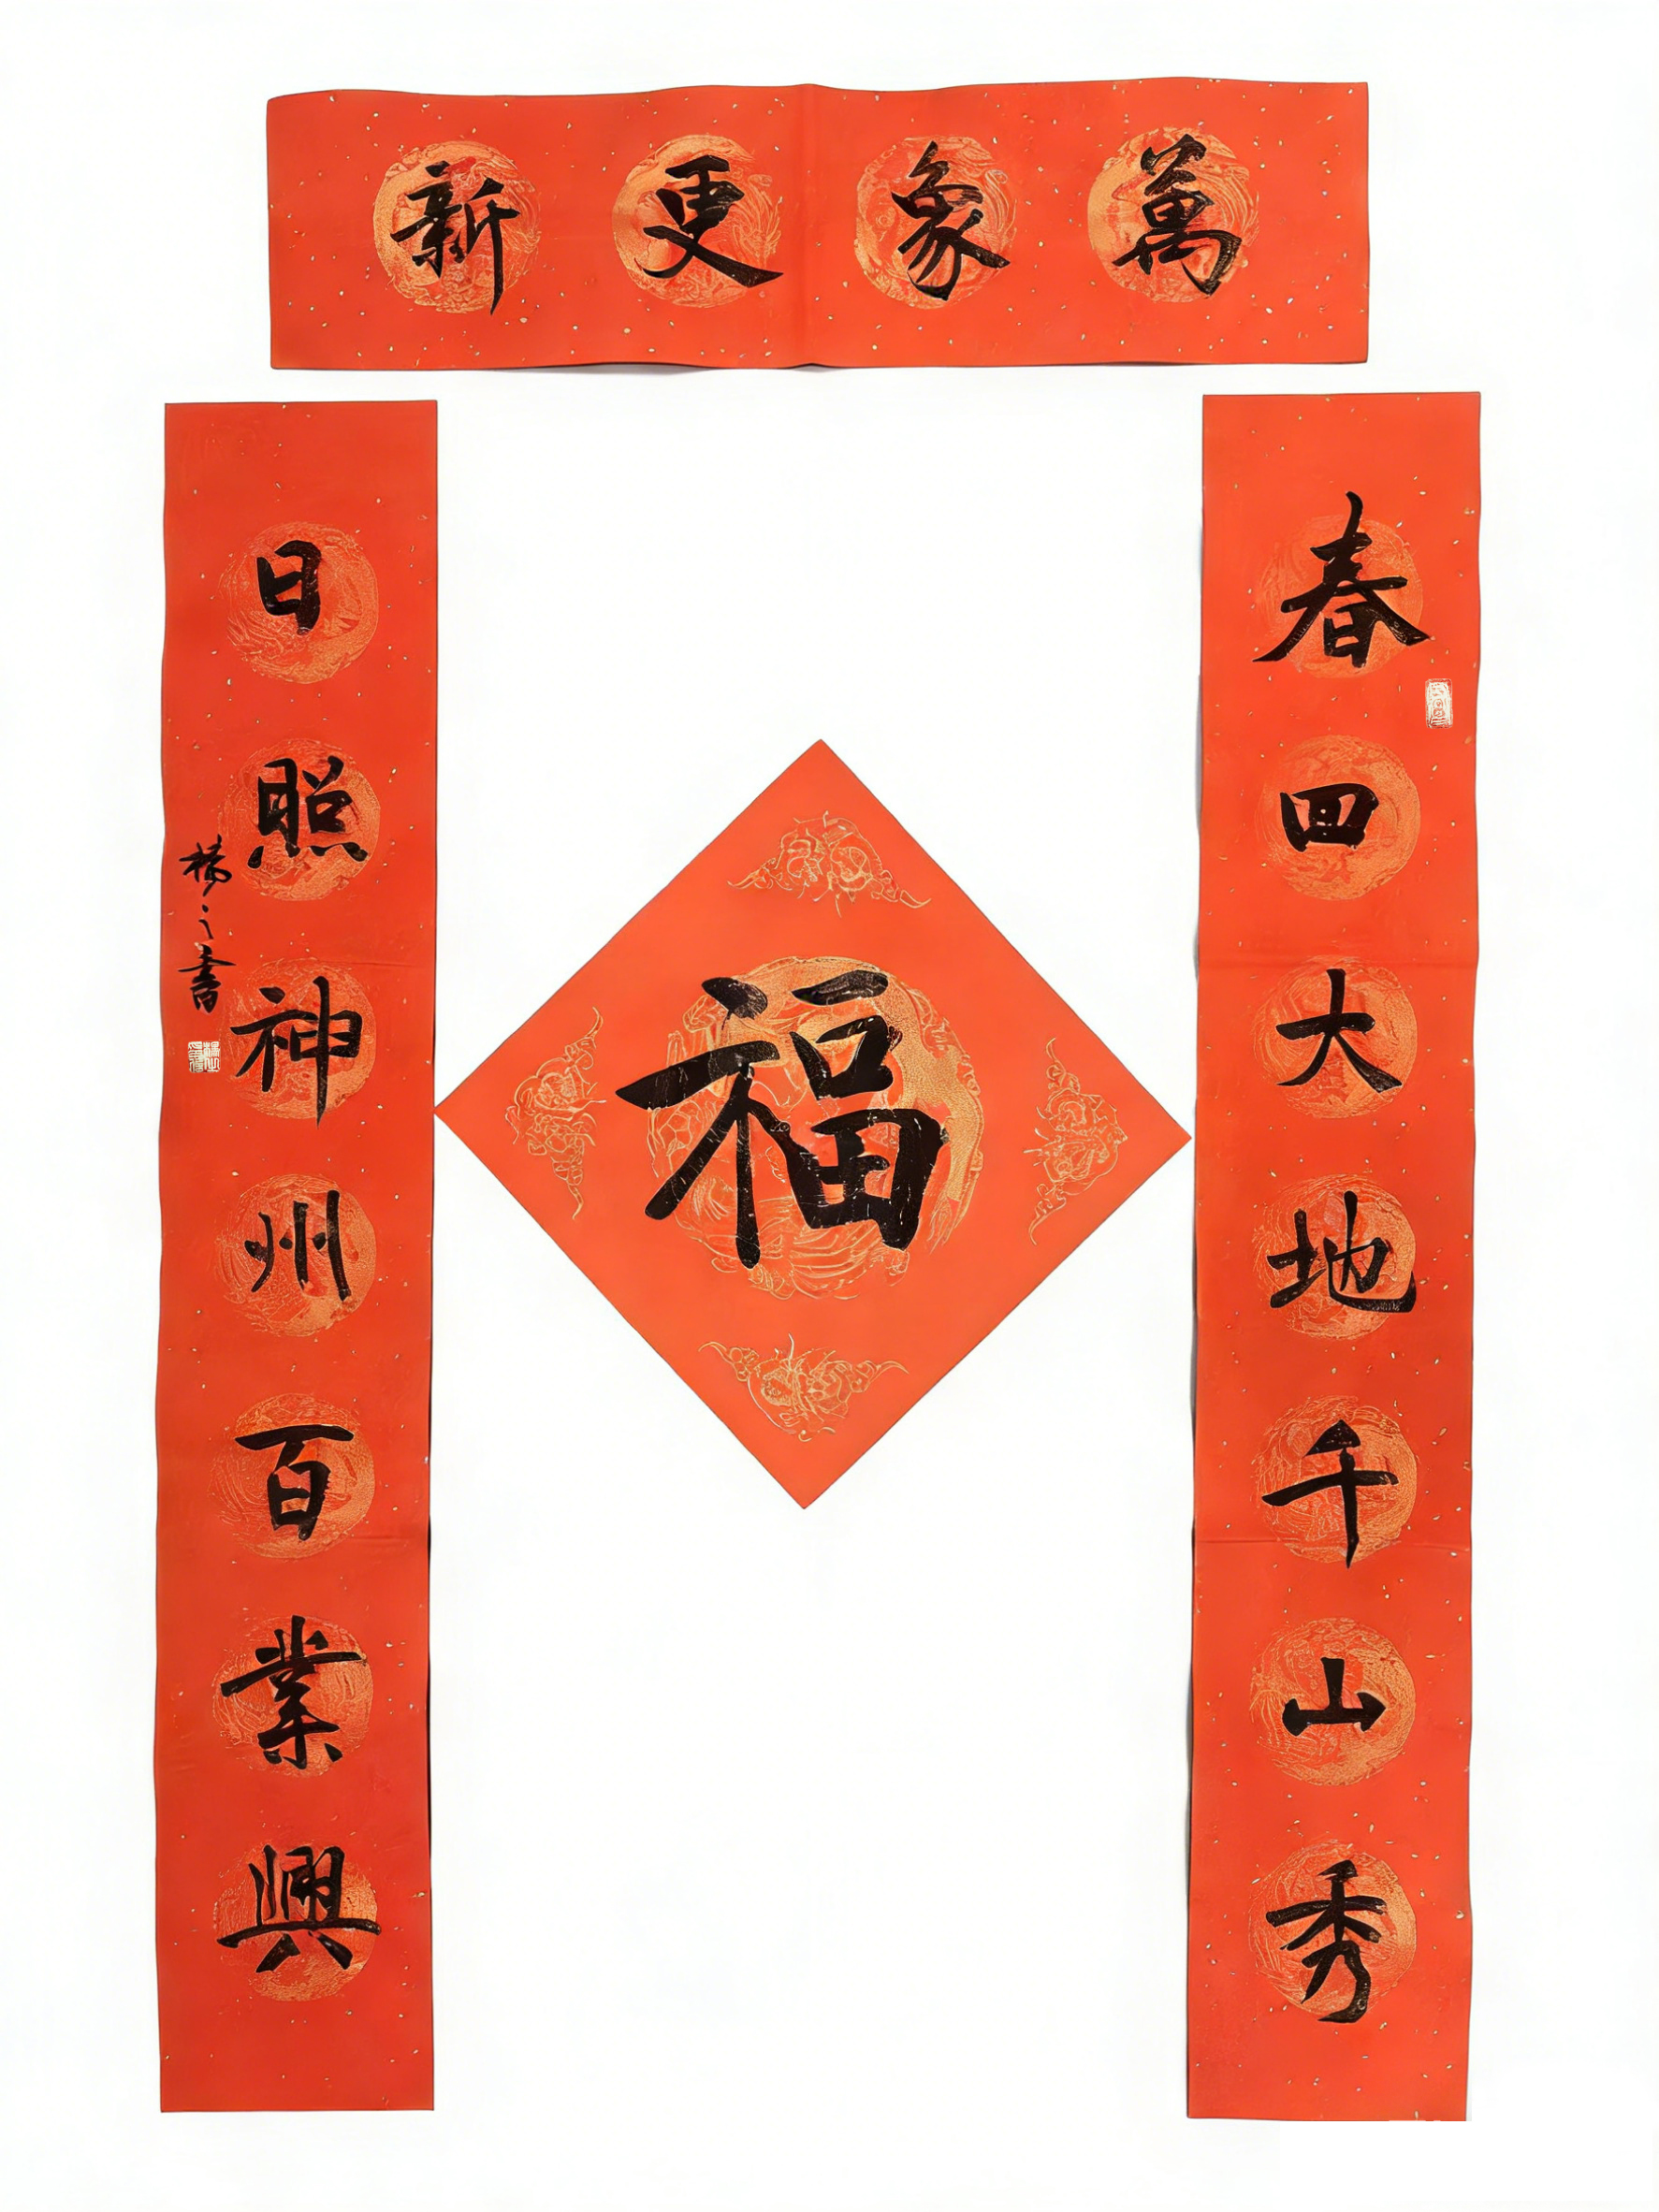 萬象更新
春回大地千山秀
日照神州百業興
楊之書
福